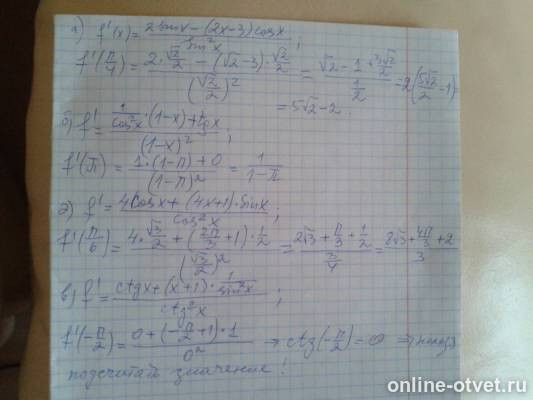 а) f'(x) = (2sinx − (2x−3)cosx) / sin²x ;
f'(π/4) = (2·√2/2 − (√2−3)·√2/2) / (√2/2)² = (√2 − 1 + 3√2/2) / (1/2) = 2(5√2/2 − 1) =
= 5√2 − 2
б) f' = (1/cos²x · (1−x) + tgx) / (1−x)² ;
f'(π) = (1·(1−π) + 0) / (1−π)² = 1/(1−π)
г) f' = (4cosx + (4x+1)·sinx) / cos²x ;
f'(π/6) = (4·√3/2 + (2π/3 + 1)·1/2) / (√3/2)² = (2√3 + π/3 + 1/2) / (3/4) = (8√3 + 4π/3 + 2) / 3
в) f' = (ctgx + (x+1)·1/sin²x) / ctg²x ;
f'(−π/2) = (0 + (−π/2 + 1)·1) / 0² → ctg(−π/2) = 0 ⇒ нельзя
подсчитать значение!
online-otvet.ru